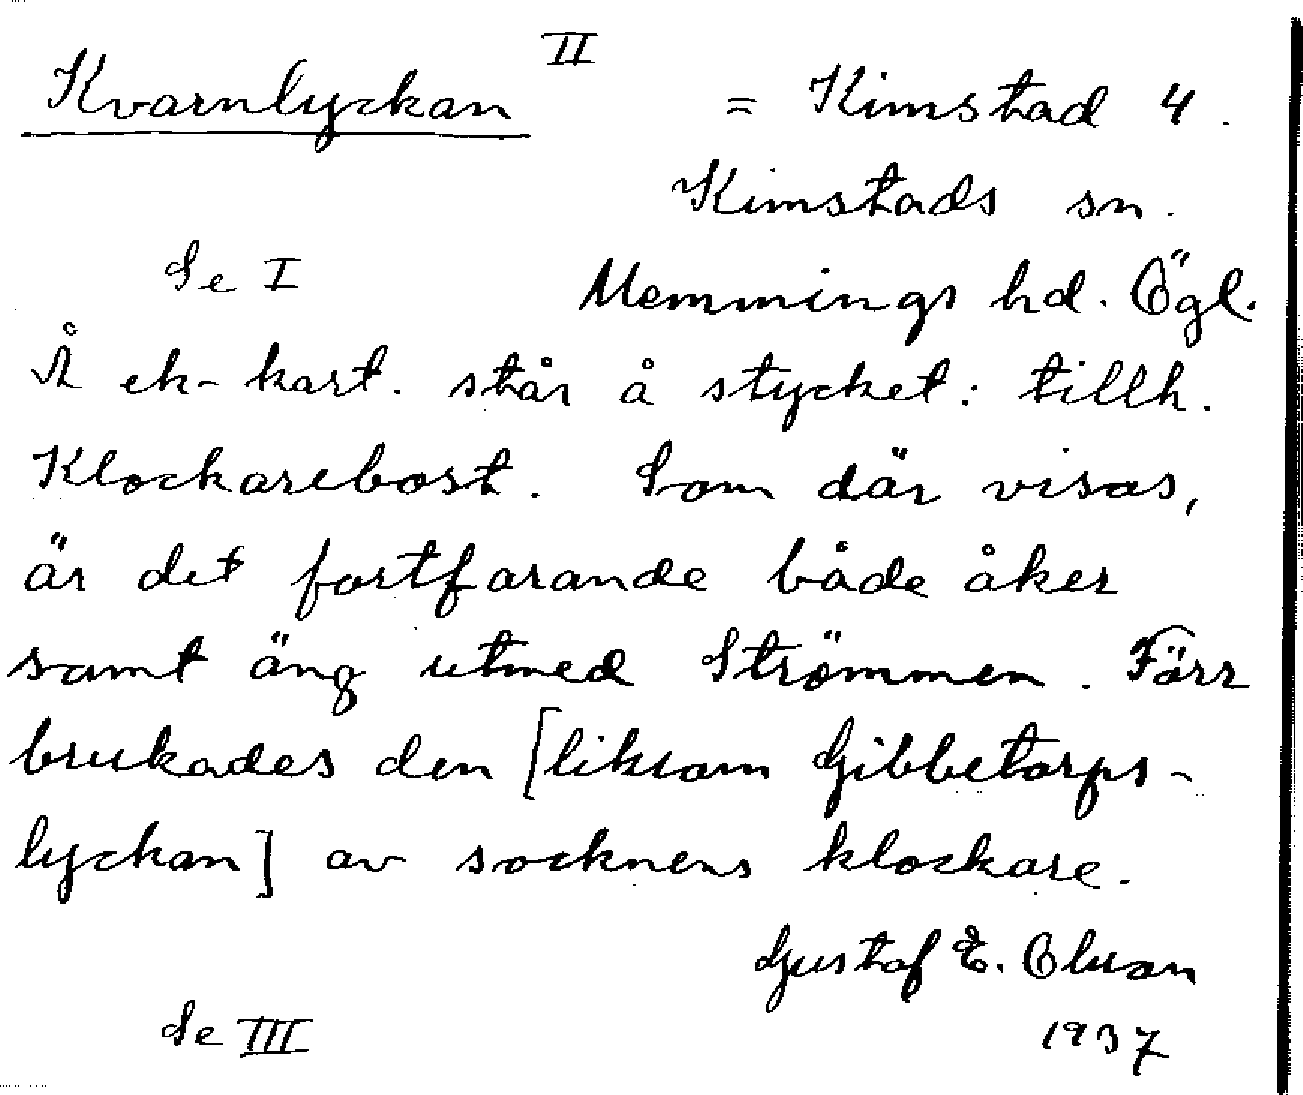 Kvarnlyckan II = Kimstad 4.
Kimstads sn.
Se I Memmings hd. Ögl.
Å ek-kart. står å stycket: tillh.
Klockarebost. Som där visas,
är det fortfarande både åker
samt äng utmed Strömmen. Förr
brukades den [liksom Gibbetorps-
lyckan] av socknens klockare.
Gustaf E. Olsson
Se III 1937